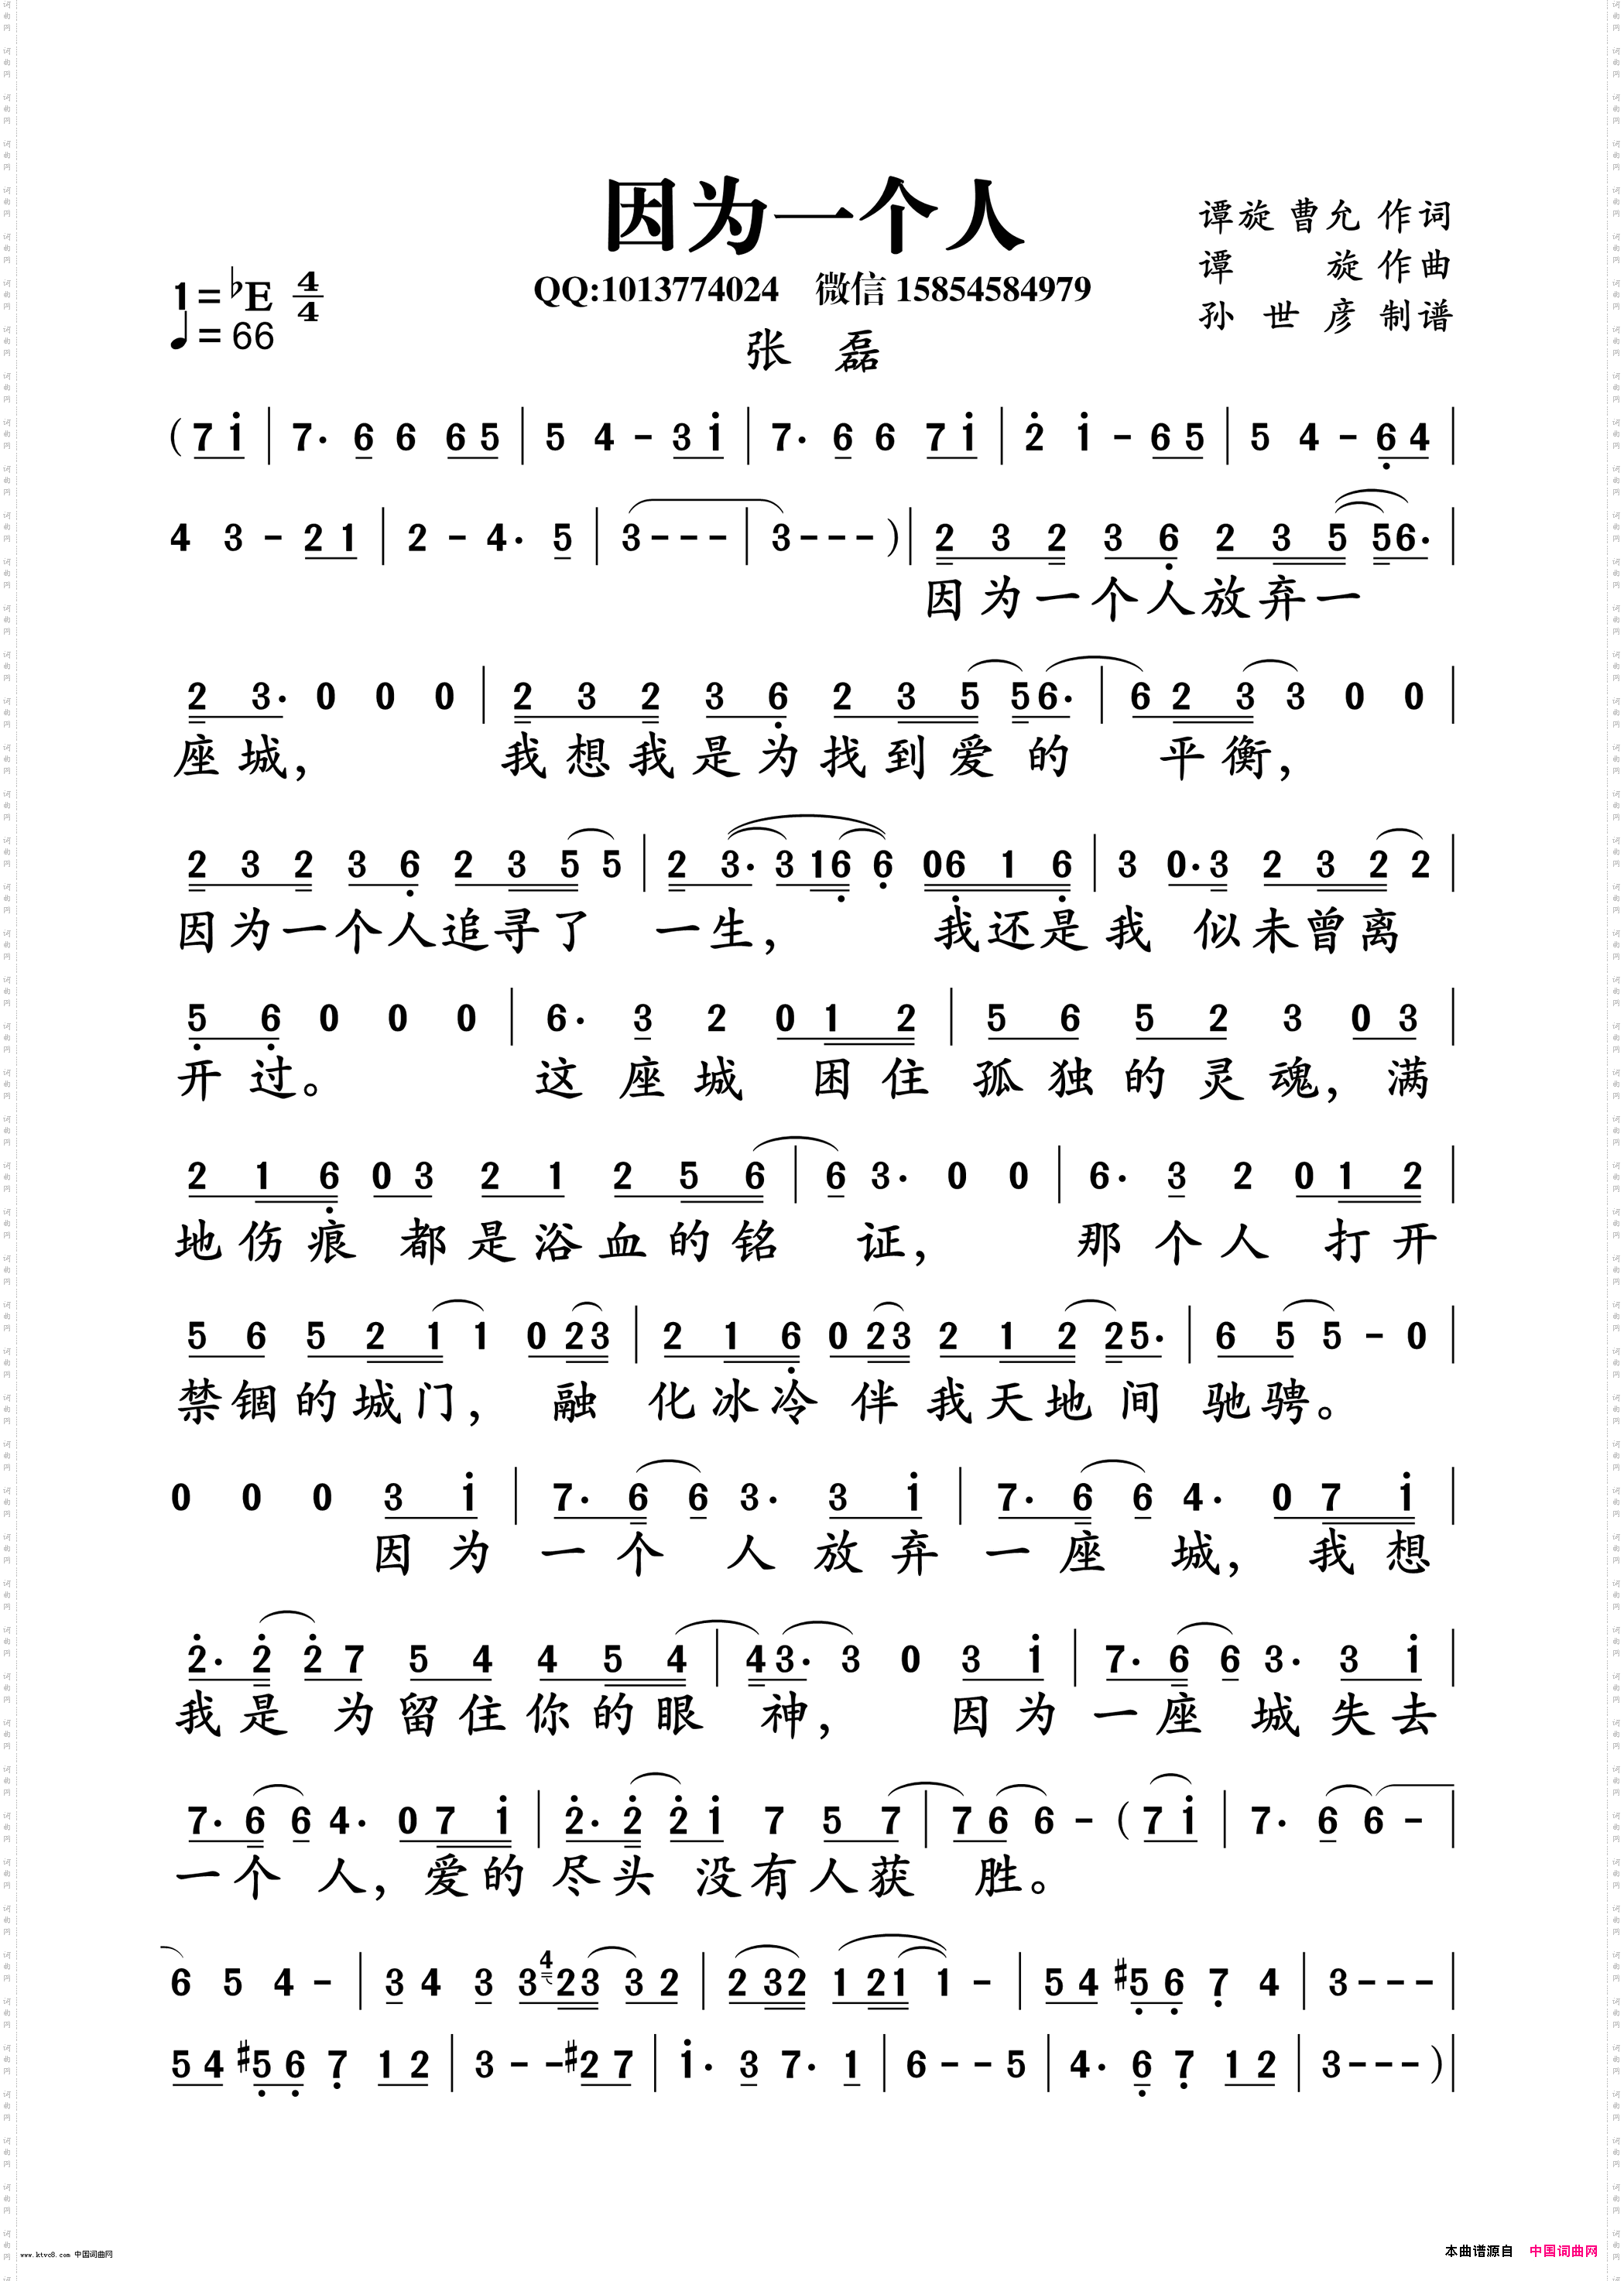 因为一个人
谭旋 曹允 作词
谭 旋 作曲
孙 世 彦 制谱
QQ:1013774024 微信 15854584979
张 磊
1=♭E 4/4
♩=66
(7 i | 7· 6 6 6 5 | 5 4 - 3 i | 7· 6 6 7 i | 2 i - 6 5 | 5 4 - 6 4 |
4 3 - 2 1 | 2 - 4· 5 | 3 - - - | 3 - - - ) | 2 3 2 3 6 2 3 5 5 6· |
因为一个人放弃一
2 3· 0 0 0 | 2 3 2 3 6 2 3 5 5 6· | 6 2 3 3 0 0 |
座城， 我想我是为找到爱的 平衡，
2 3 2 3 6 2 3 5 5 | 2 3· 3 1 6 6 0 6 1 6 | 3 0· 3 2 3 2 2 |
因为一个人追寻了 一生， 我还是我 似未曾离
5 6 0 0 0 | 6· 3 2 0 1 2 | 5 6 5 2 3 0 3 |
开过。 这座城 困住孤独的灵魂，满
2 1 6 0 3 2 1 2 5 6 | 6 3· 0 0 | 6· 3 2 0 1 2 |
地伤痕 都是浴血的铭 证， 那个人 打开
5 6 5 2 1 1 0 2 3 | 2 1 6 0 2 3 2 1 2 2 5· | 6 5 5 - 0 |
禁锢的城门， 融 化冰冷 伴我天地间 驰骋。
0 0 0 3 i | 7· 6 6 3· 3 i | 7· 6 6 4· 0 7 i |
因为 一个 人 放弃 一座 城， 我想
2· 2 2 7 5 4 4 5 4 | 4 3· 3 0 3 i | 7· 6 6 3· 3 i |
我是 为留住你的眼 神， 因为 一座 城失去
7· 6 6 4· 0 7 i | 2· 2 2 i 7 5 7 | 7 6 6 - (7 i | 7· 6 6 - |
一个 人，爱的 尽头 没有人获 胜。
6 5 4 - | 3 4 3 3 4 2 3 3 2 | 2 3 2 1 2 1 1 - | 5 4 #5 6 7 4 | 3 - - - |
5 4 #5 6 7 1 2 | 3 - - #2 7 | i· 3 7· 1 | 6 - - 5 | 4· 6 7 1 2 | 3 - - - ) |
www.ktvc8.com 中国词曲网
本曲谱源自 中国词曲网